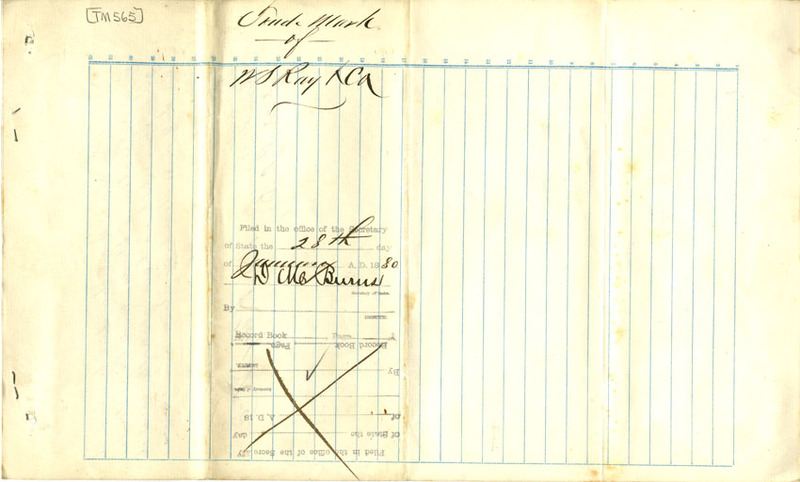 [TM565]
Trade Mark
of
W S Ray & Co
Filed in the office of the Secretary
of State the 28th day
of January A. D. 1880
D M Burns
Secretary of State.
By
DEPUTY.
Record Book Page
Record Book Page
By
DEPUTY.
Secretary of State.
of A. D. 18
of State the day
Filed in the office of the Secretary